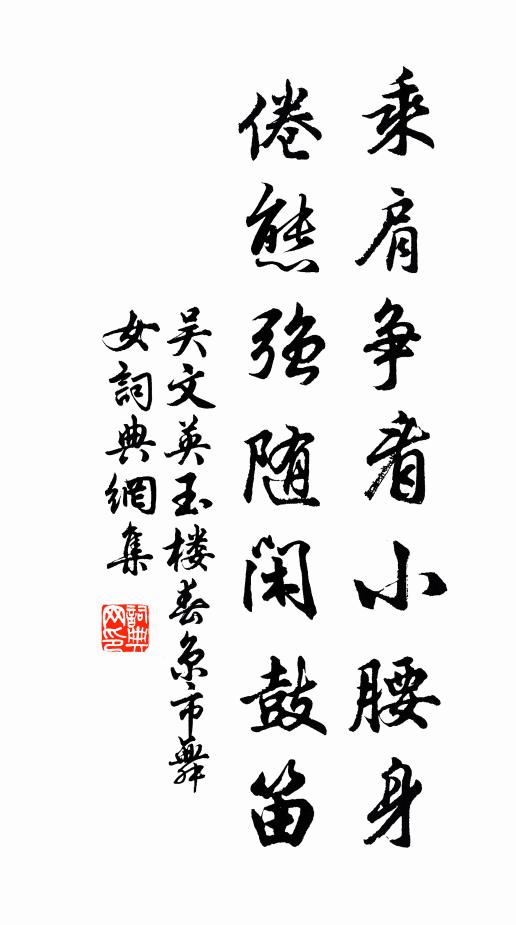 乘肩争看小腰身
倦態强随闲鼓笛
吴文英玉楼春京市舞
女詞典網集
詞典网印